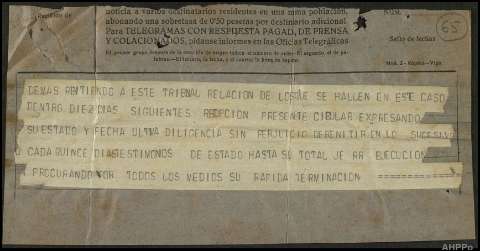 noticia a varios destinatarios residentes en una misma población,
abonando una sobretasa de 0'50 pesetas por destinatario adicional.
Para TELEGRAMAS CON RESPUESTA PAGADA, DE PRENSA
Y COLACIONADOS, pídanse informes en las Oficinas Telegráficas
65
Sello de fechas
DEMAS REMITIENDO A ESTE TRIBNAL RELACION DE LOSQUE SE HALLEN EN ESTE CASO
DENTRO DIEZ DIAS SIGUIENTES RECEPCION PRESENTE CIRULAR EXPRESANDO
SU ESTADO Y FECHA ULTIVA DILIGENCIA SIN PERJUICIO DE REMITIR EN LO SUCESIVO
CADA QUINCE DIAS TESTIMONOS DE ESTADO HASTA SU TOTAL JE RR EJECUCION
PROCURANDO POR TODOS LOS MEDIOS SU RAPIDA TERMINACION
AHPPo